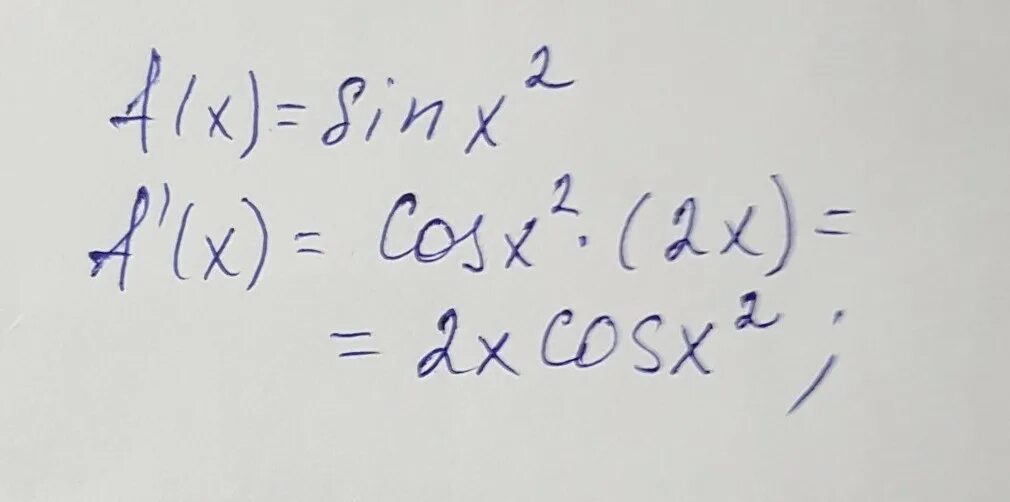 f(x) = sin x²
f'(x) = cos x² · (2x) =
= 2x cos x² ;